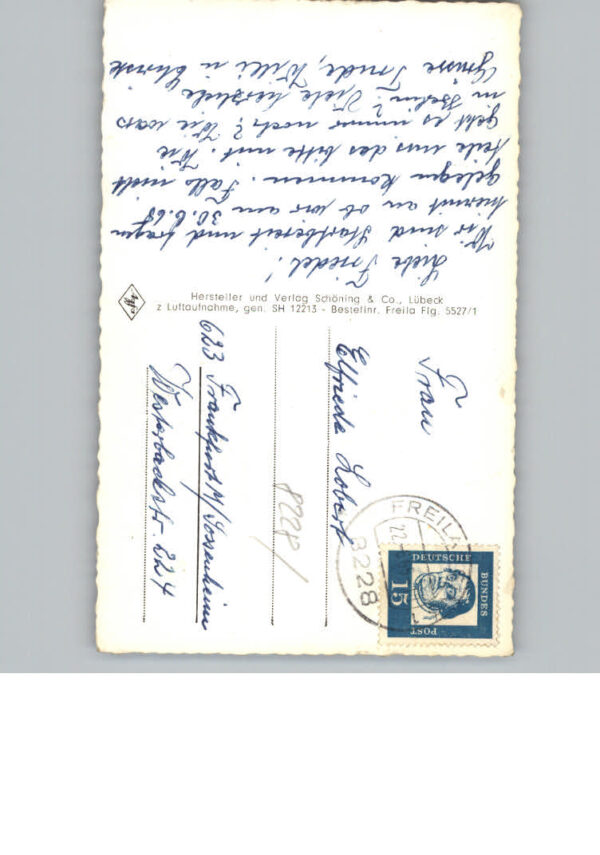 Liebe Friedel!
Wir sind startbereit und fragen
hiermit an ob wir am
gelegen kommen. Falls nicht
teile uns das bitte mit. Wie
geht es immer noch? Wie wars
in Berlin? Viele herzliche
Grüsse Trude, Willi u
Hersteller und Verlag Schöning & Co., Lübeck
z Luftaufnahme, gen. SH 12213 - Bestellnr. Freila Flg. 5527/1
Frau
Elfriede Lobert
8228/
623 Frankfurt M/Sossenheim
Westerbachstr. 224
FREILA
22.
8228
DEUTSCHE
BUNDES
POST
15